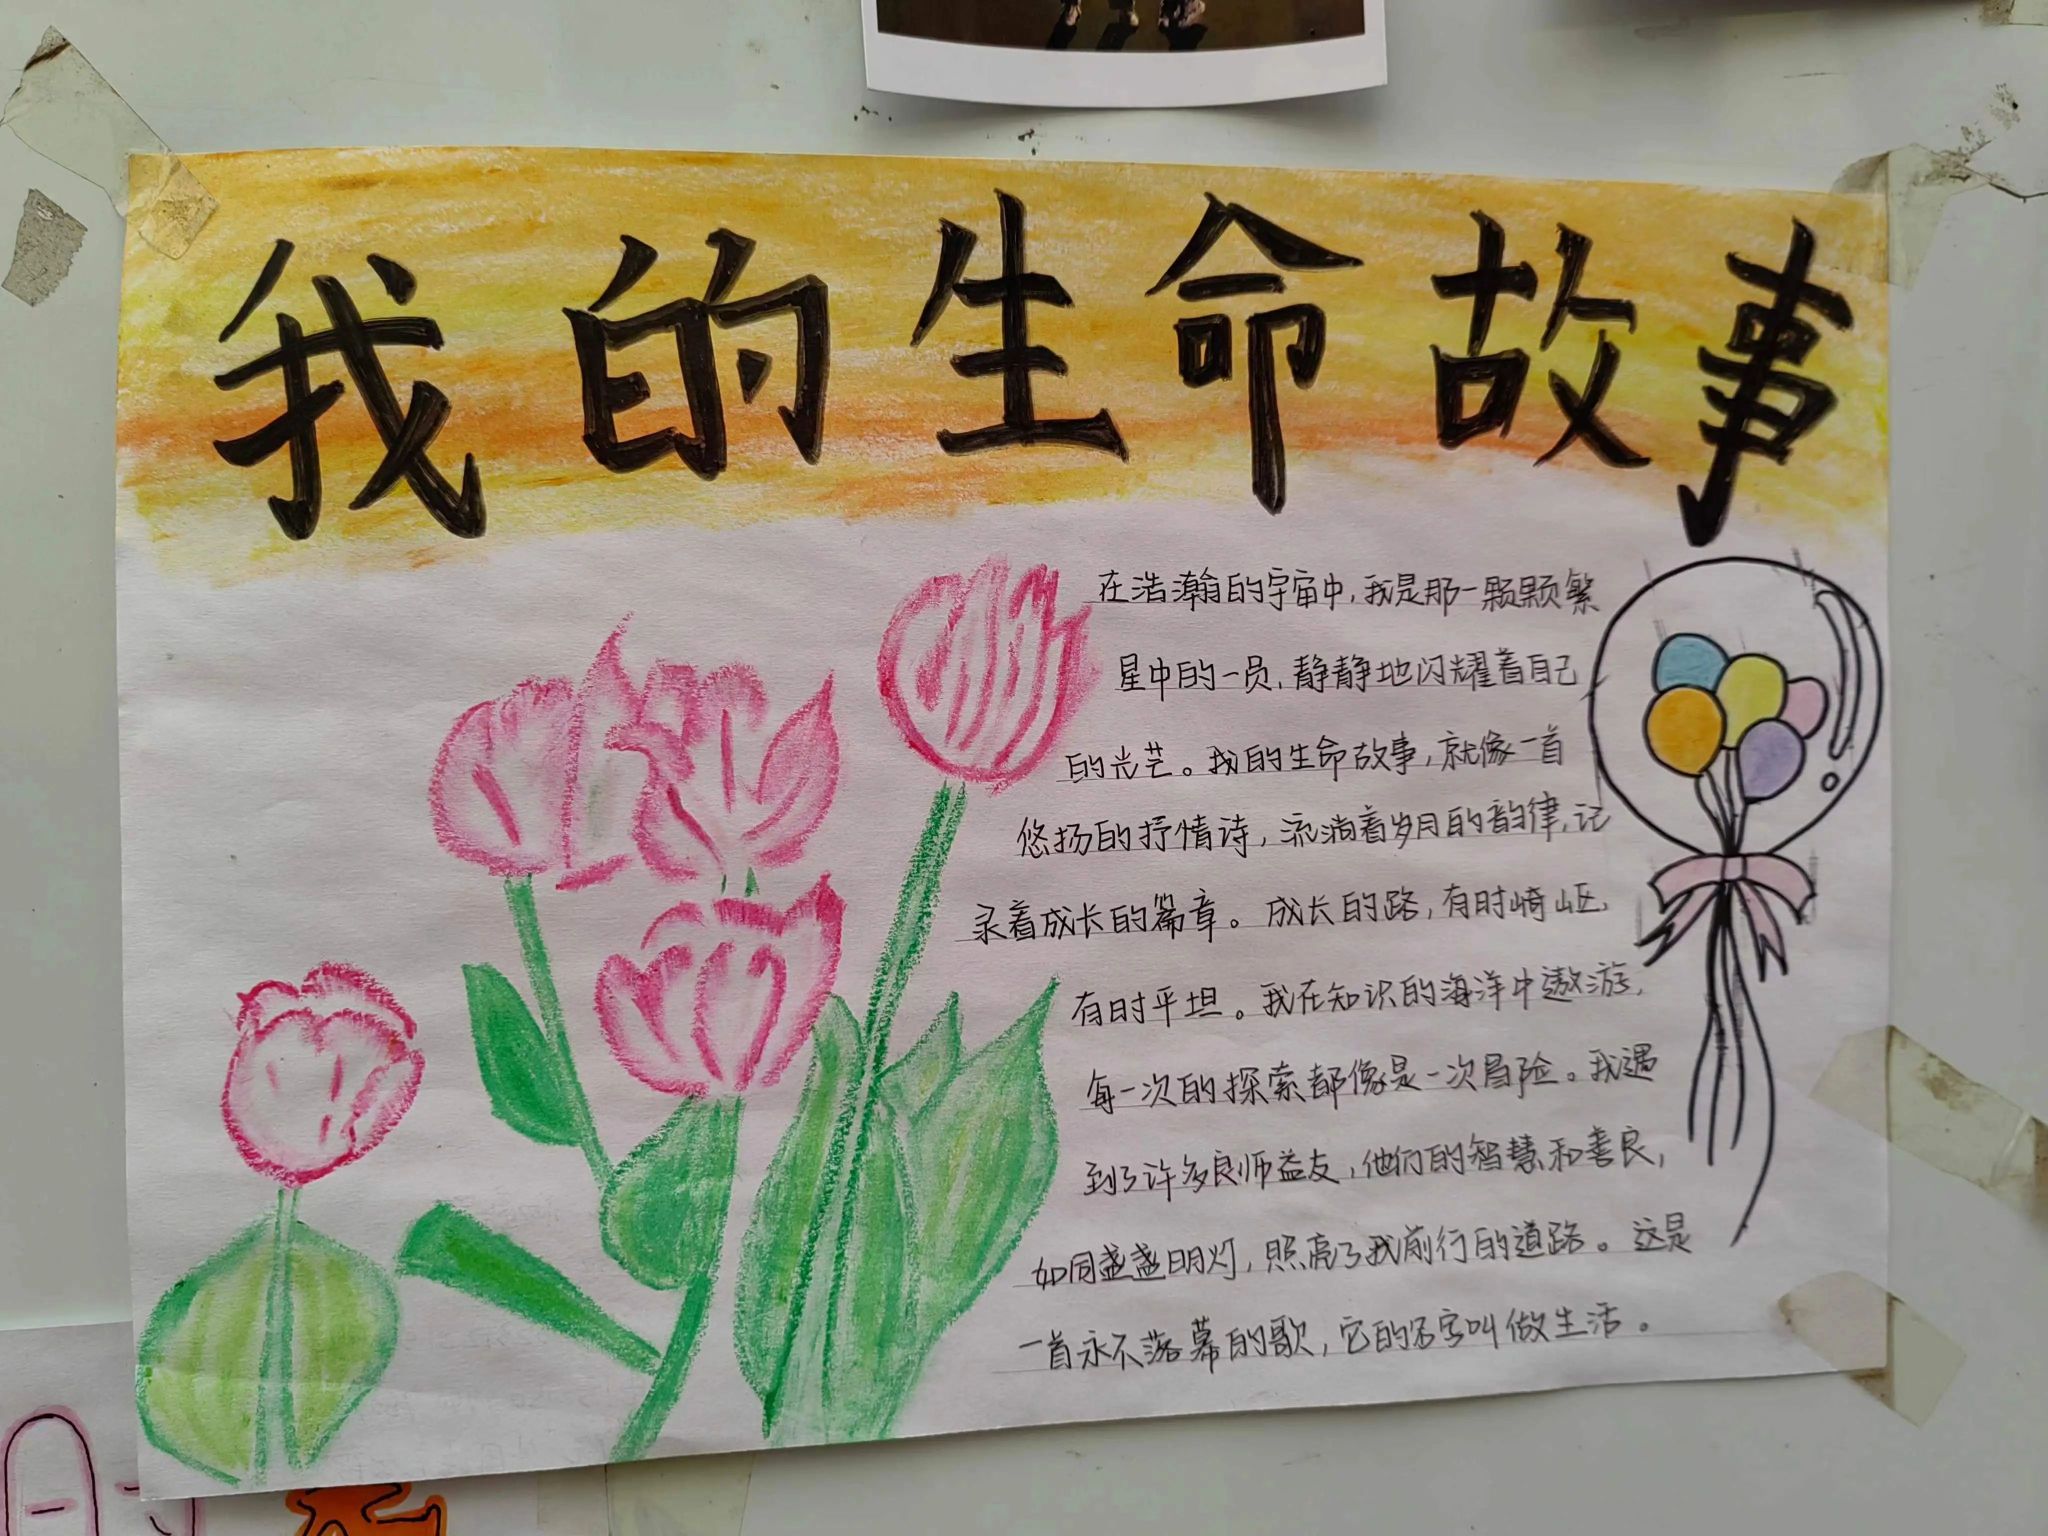 我的生命故事
在浩瀚的宇宙中,我是那一颗颗繁
星中的一员,静静地闪耀着自己
的光芒。我的生命故事,就像一首
悠扬的抒情诗,流淌着岁月的韵律,记
录着成长的篇章。成长的路,有时崎岖,
有时平坦。我在知识的海洋中遨游,
每一次的探索都像是一次冒险。我遇
到了许多良师益友,他们的智慧和善良,
如同盏盏明灯,照亮了我前行的道路。这是
一首永不落幕的歌,它的名字叫做生活。